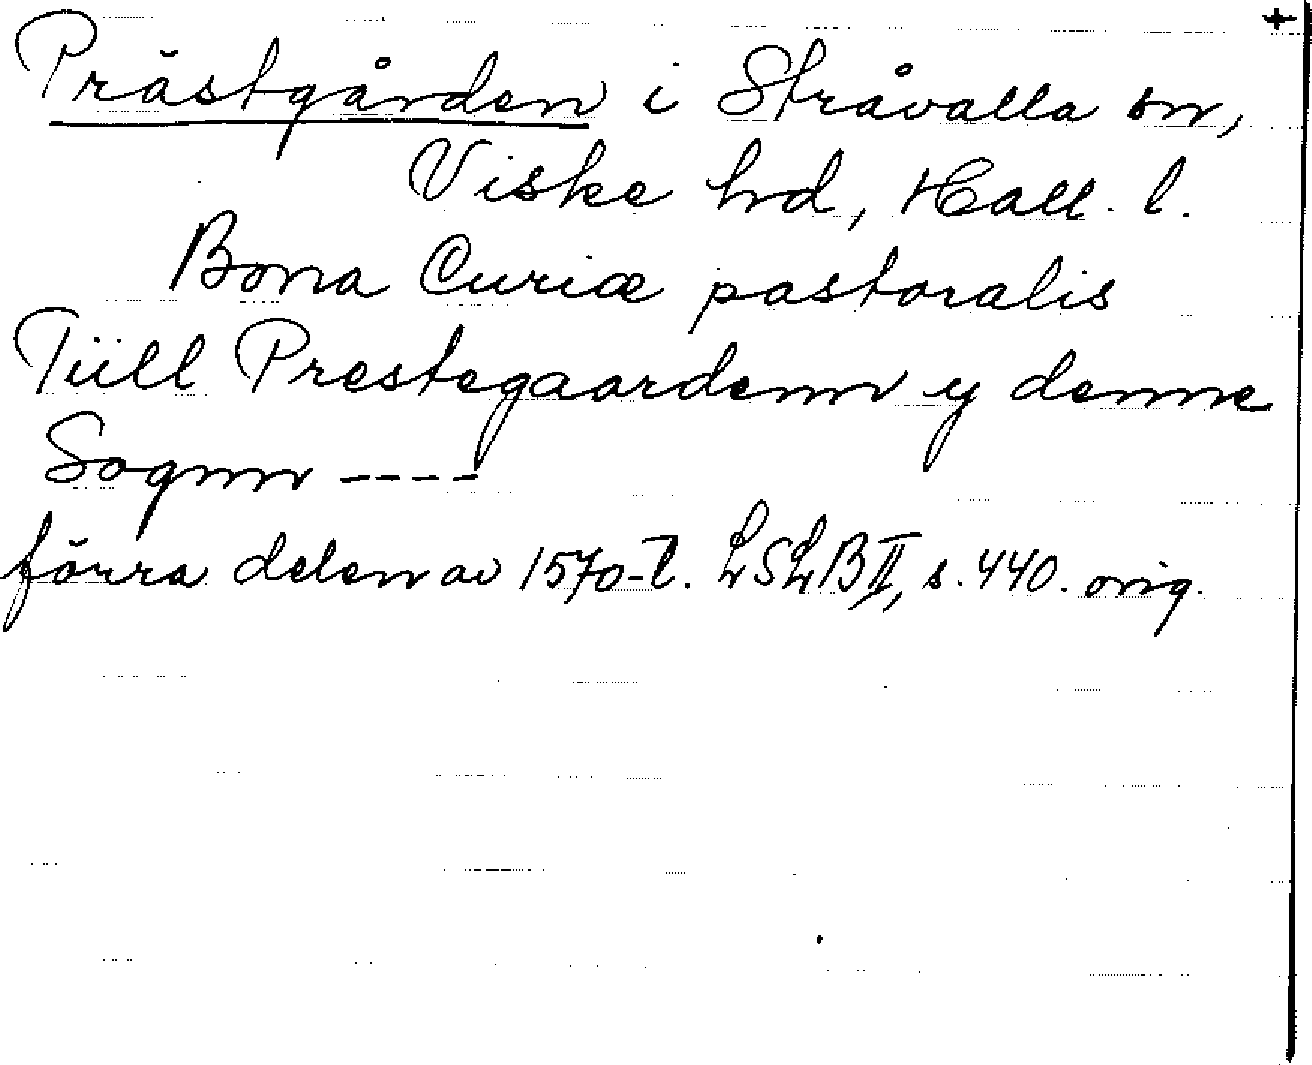 +
Prästgården i Stråvalla sn,
Viske hd, Hall. l.
Bona Curiæ pastoralis
Tiill Prestegaardenn y denne
Sognn ----
förra delen av 1570-t. LSLB II, s. 440. orig.